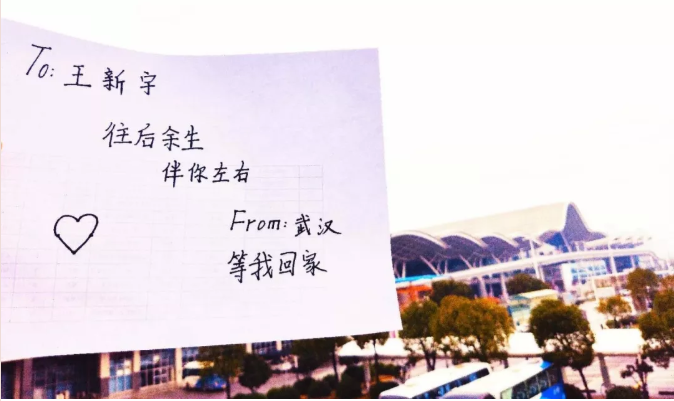 To: 王新宇
往后余生
伴你左右
From: 武汉
等我回家